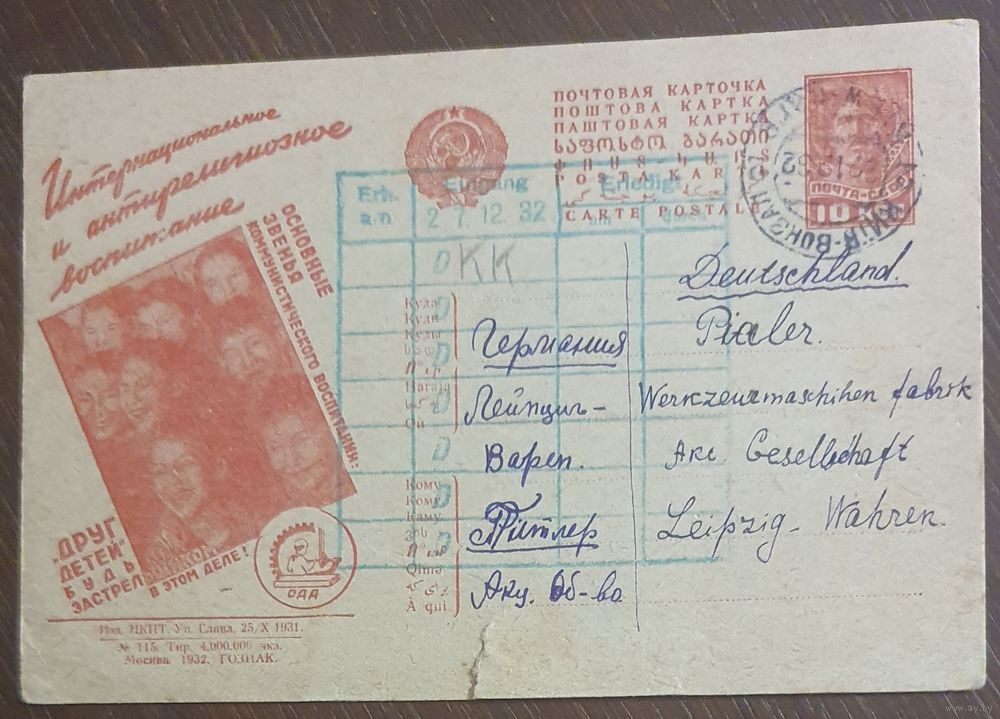 Интернациональное
и антирелигиозное
воспитание
ОСНОВНЫЕ
ЗВЕНЬЯ
КОММУНИСТИЧЕСКОГО ВОСПИТАНИЯ:
„ДРУГ
ДЕТЕЙ"
БУДЬ
ЗАСТРЕЛЬЩИКОМ
В ЭТОМ ДЕЛЕ!
ОДА
Изд. НКПТ. Уп. Главл. 25/X 1931.
№ 115. Тир. 4.000.000 экз.
Москва. 1932. ГОЗНАК.
ПОЧТОВАЯ КАРТОЧКА
ПОШТОВА КАРТКА
ПАШТОВАЯ КАРТКА
ᲡᲐᲤᲝᲡᲢᲝ ᲑᲐᲠᲐᲗᲘ
POSTA KART
CARTE POSTALE
ПОЧТА СССР
10
ВОКЗАЛ
Erh.
a.n
Eingang
27.12.32
Erledigt
am
D KK
D
D
D
D
D
D
Куда
Куди
Куды
Haraja
Ու
Кому
Кому
Каму
Qimə
À qui
Германия
Лейпциг-
Варен.
Питлер
Акц. Об-во
Deutschland.
Pitler.
Werkzeurmaschihen fabrik
Akc. Gesellschaft
Leipzig-Wahren.
www.ay.by